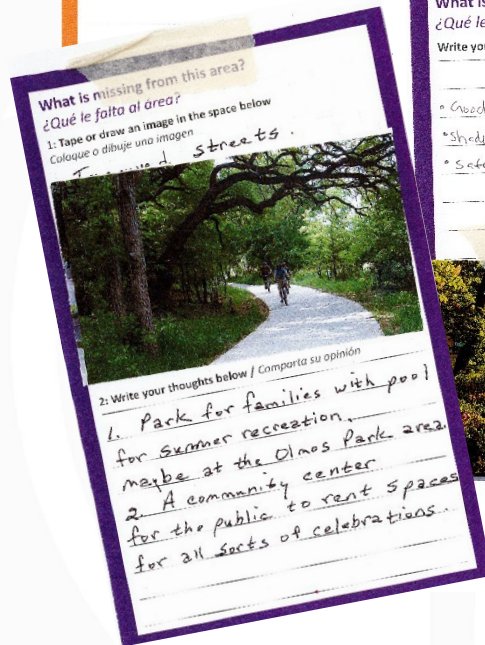 What is missing from this area?
¿Qué le falta al área?
1: Tape or draw an image in the space below
Coloque o dibuje una imagen
streets.
2: Write your thoughts below / Comparta su opinión
1. Park for families with pool
for summer recreation.
maybe at the Olmos Park area.
2. A community center
for the public to rent spaces
for all sorts of celebrations.
What is
¿Qué le
Write you